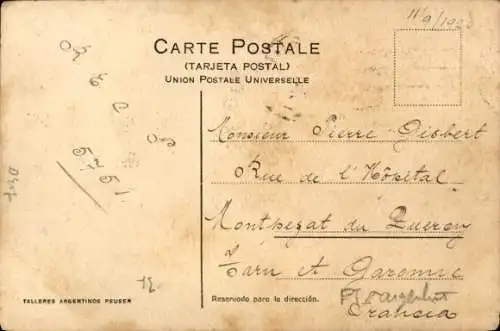 11/9/1923
CARTE POSTALE
(TARJETA POSTAL)
UNION POSTALE UNIVERSELLE
Monsieur Pierre Gisbert
Rue de l'Hôpital
Montpezat du Quercy
Tarn et Garonne
Francia
12.
TALLERES ARGENTINOS PEUSER
Reservado para la dirección.